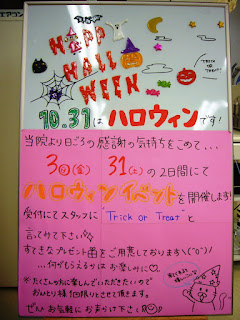 エアコン
HAPPY
HALLO
WEEN
TRICK or TREAT!
10.31は ハロウィンです!
当院より日ごろの感謝の気持ちをこめて...
30(金) 31(土)の2日間にて
ハロウィンイベントを開催します!
受付にてスタッフに "Trick or Treat"
と言ってみて下さい
すてきなプレゼント をご用意しております\(^o^)/
...何がもらえるかは お楽しみに♡
※たくさんの方に楽しんでいただきたいので
おひとり様1回限りとさせて頂きます。
ぜひお気軽に お声がけ下さい